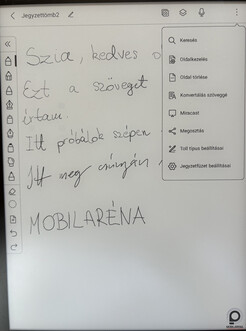 Jegyzettömb2
Szia, kedves o
Ezt a szöveget
írtam.
Itt próbálok szépen
Itt meg csúnyán
MOBILARÉNA
Keresés
Oldalkezelés
Oldal törlése
Konvertálás szöveggé
Miracast
Megosztás
Toll típus beállításai
Jegyzetfüzet beállításai